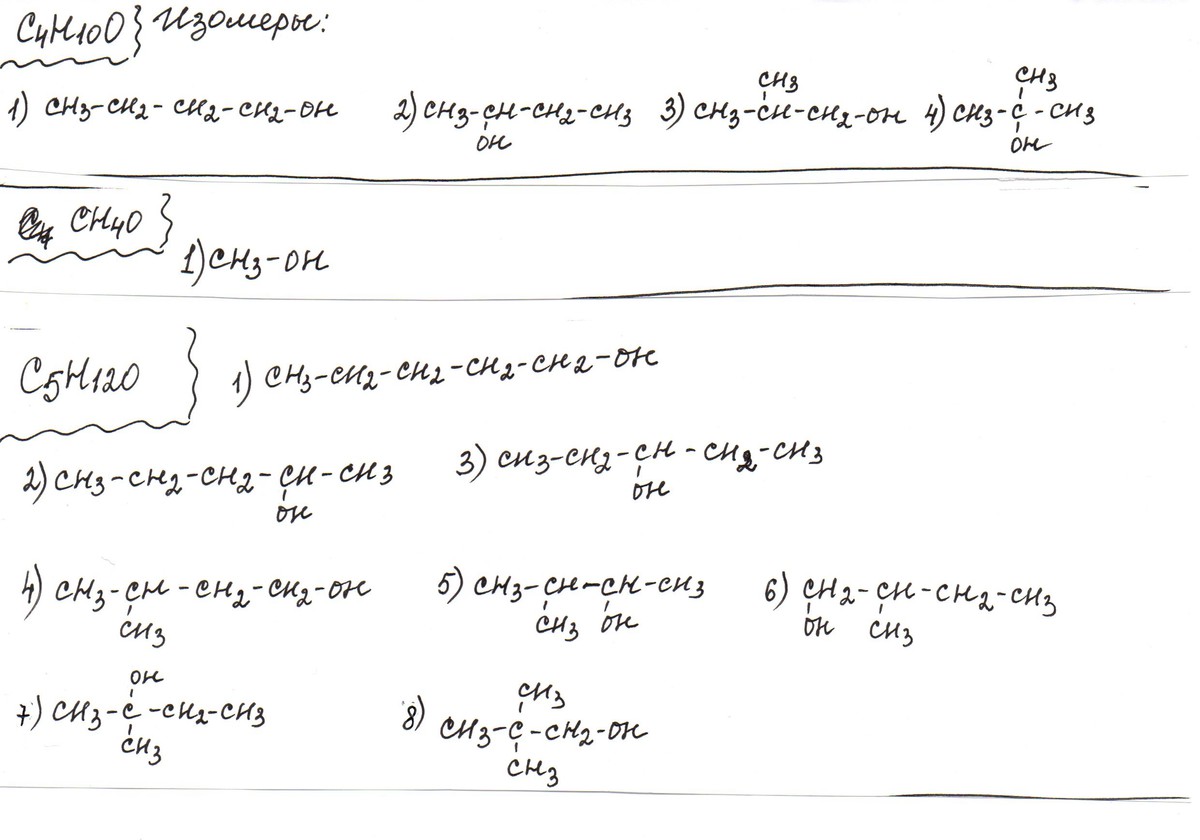 C4H10O} Изомеры:
1) CH3-CH2-CH2-CH2-OH 2) CH3-CH-CH2-CH3 3) CH3-CH-CH2-OH 4) CH3-C-CH3
OH CH3 CH3 OH
CH4O}
1) CH3-OH
C5H12O } 1) CH3-CH2-CH2-CH2-CH2-OH
2) CH3-CH2-CH2-CH-CH3 3) CH3-CH2-CH-CH2-CH3
OH OH
4) CH3-CH-CH2-CH2-OH 5) CH3-CH-CH-CH3 6) CH2-CH-CH2-CH3
CH3 CH3 OH OH CH3
OH CH3
7) CH3-C-CH2-CH3 8) CH3-C-CH2-OH
CH3 CH3